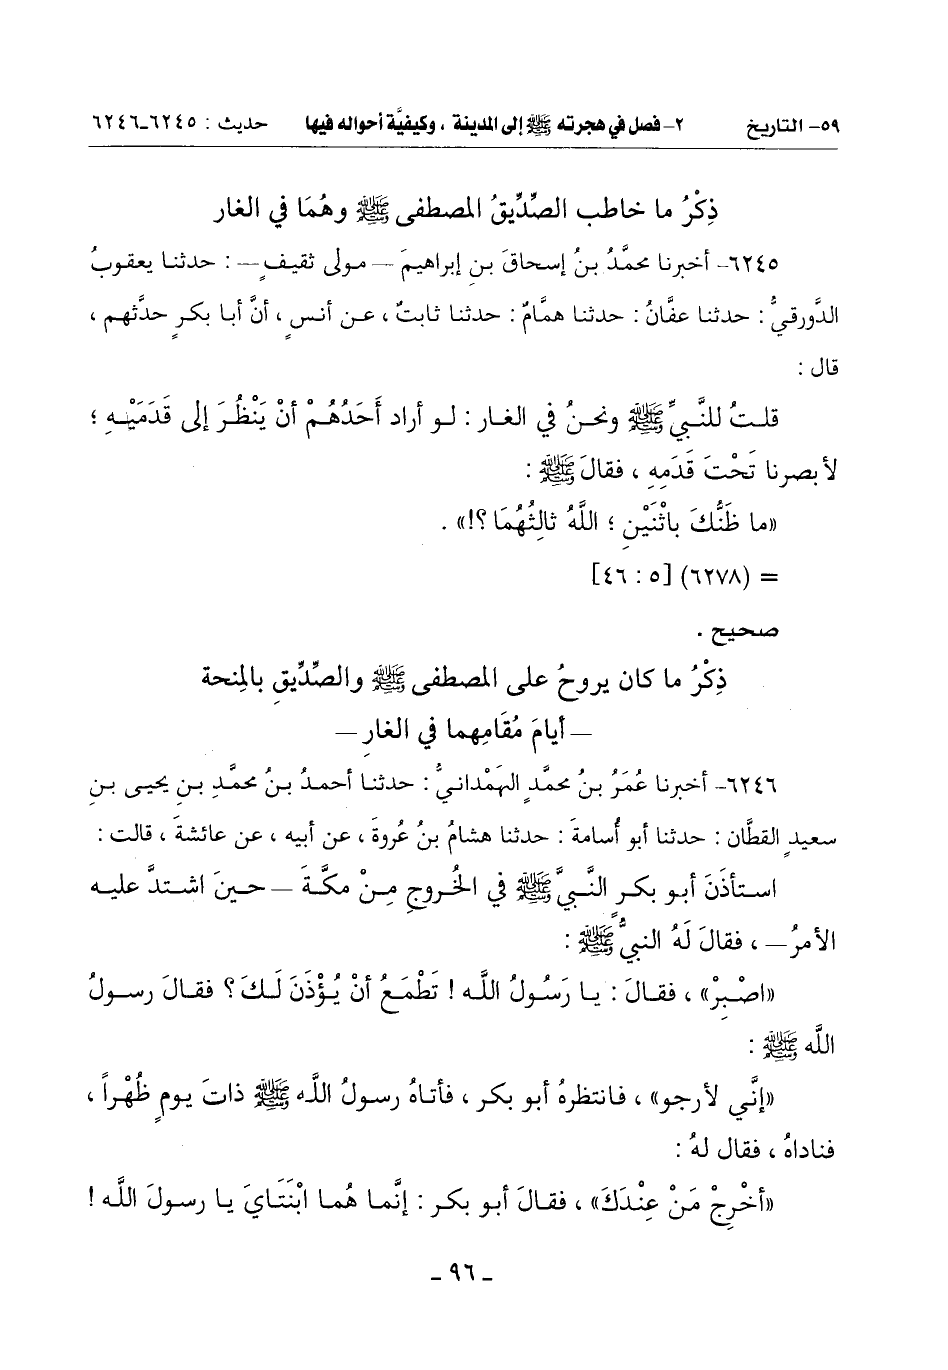 ٥٩- التاريخ ٢- فصل في هجرته ﷺ إلى المدينة ، وكيفيَّة أحواله فيها حديث : ٦٢٤٥-٦٢٤٦
ذِكْرُ ما خاطب الصِّدِّيقُ المصطفى ﷺ وهُمَا في الغار
٦٢٤٥- أخبرنا محمَّدُ بنُ إسحاقَ بنِ إبراهيمَ — مولى ثقيفٍ — : حدثنا يعقوبُ
الدَّورقيُّ : حدثنا عفَّانُ : حدثنا همَّامٌ : حدثنا ثابتٌ ، عن أنسٍ ، أنَّ أبا بكرٍ حدَّثهم ،
قال :
قلتُ للنَّبيِّ ﷺ ونحنُ في الغار : لو أراد أَحَدُهُمْ أنْ يَنْظُرَ إلى قَدَمَيْهِ ؛
لأبصرنا تَحْتَ قَدَمِهِ ، فقالَ ﷺ :
«ما ظَنُّكَ باثْنَيْنِ ؛ اللَّهُ ثالِثُهُمَا ؟!» .
= (٦٢٧٨) [٥ : ٤٦]
صحيح .
ذِكْرُ ما كان يروحُ على المصطفى ﷺ والصِّدِّيقِ بالمِنحة
— أيامَ مُقَامِهما في الغارِ —
٦٢٤٦- أخبرنا عُمَرُ بنُ محمَّدٍ الهَمْدانيُّ : حدثنا أحمدُ بنُ محمَّدِ بنِ يحيى بنِ
سعيدٍ القطَّان : حدثنا أبو أُسامةَ : حدثنا هشامُ بنُ عُروةَ ، عن أبيه ، عن عائشةَ ، قالت :
استأذَنَ أبو بكرٍ النَّبيَّ ﷺ في الخُروجِ مِنْ مكَّةَ — حينَ اشتدَّ عليه
الأمرُ — ، فقالَ لَهُ النبيُّ ﷺ :
«اصْبِرْ» ، فقالَ : يا رَسُولُ اللَّه ! تَطْمَعُ أنْ يُؤْذَنَ لَكَ ؟ فقالَ رسولُ
اللَّه ﷺ :
«إنَّي لأرجو» ، فانتظرهُ أبو بكر ، فأتاهُ رسولُ اللَّه ﷺ ذاتَ يومٍ ظُهْراً ،
فناداهُ ، فقال لهُ :
«أخْرِجْ مَنْ عِنْدَكَ» ، فقالَ أبو بكر : إنَّما هُما ابْنَتَايَ يا رسولَ اللَّه !
- ٩٦ -